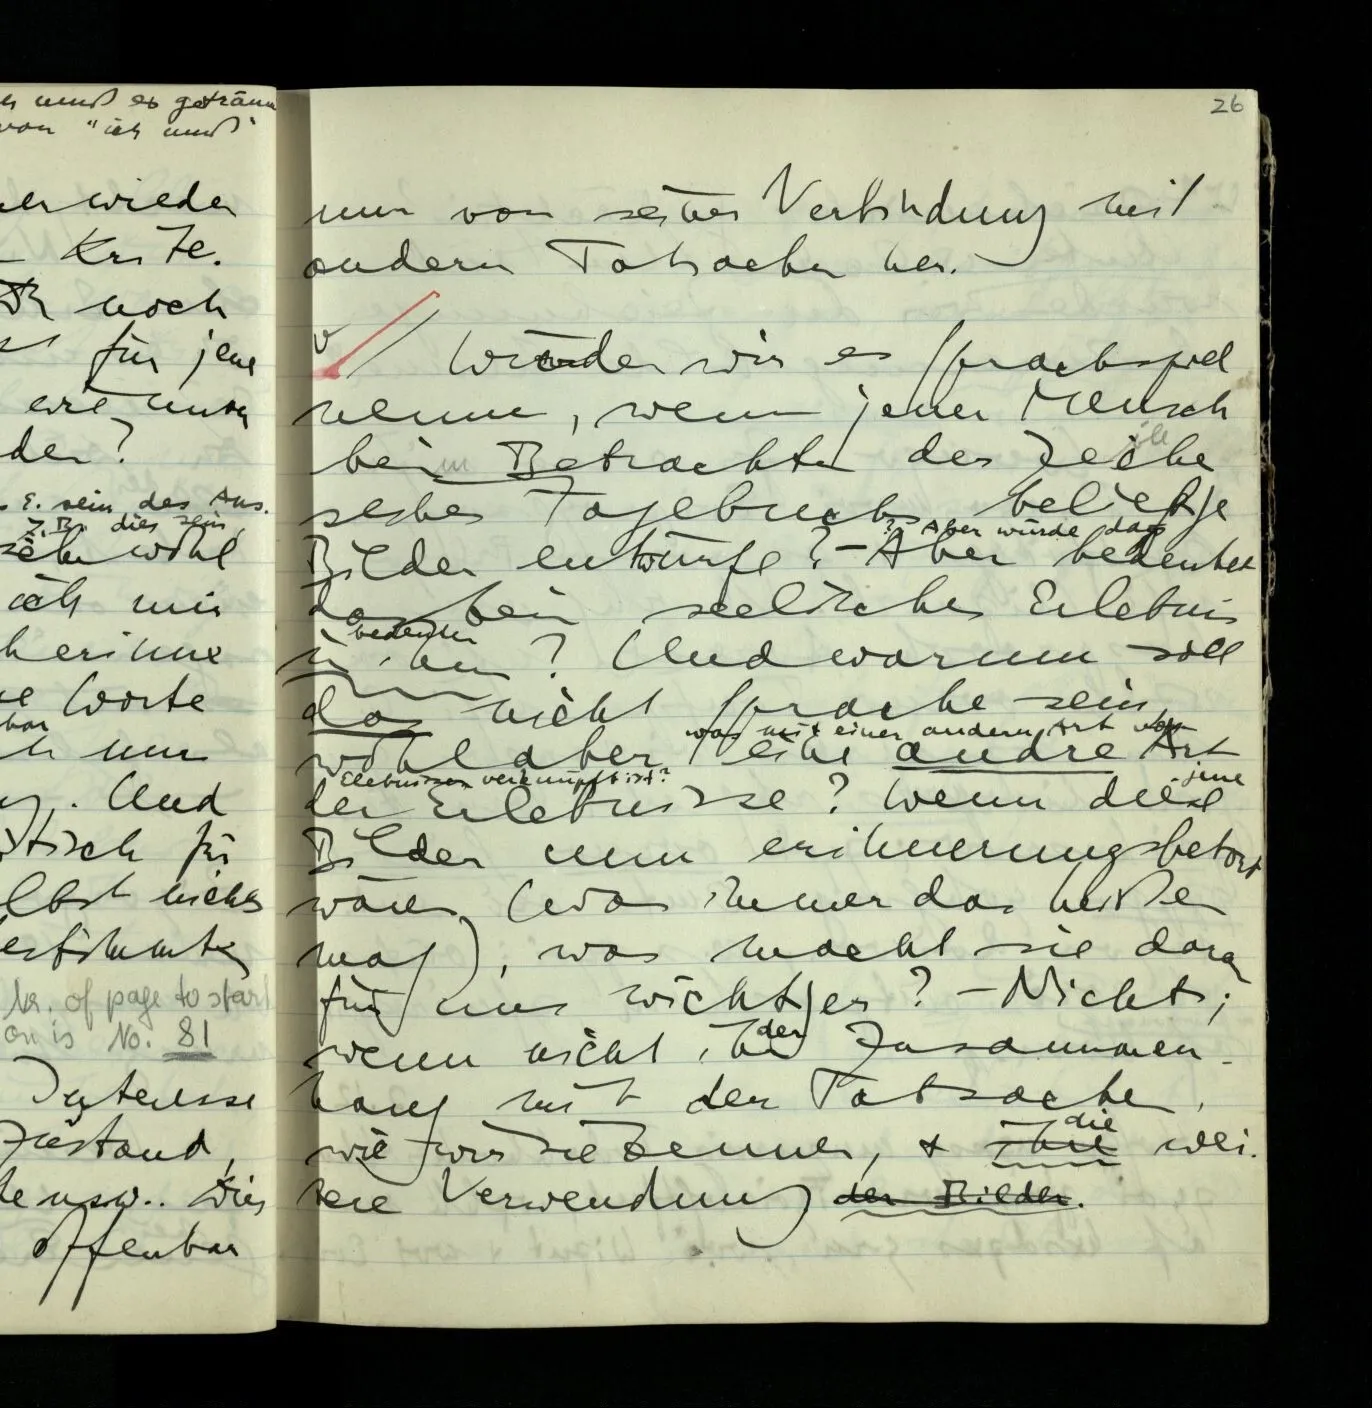 muß es geträum
von "ich muß"
wieder
Kiste.
noch
für jene
der?
E. sein des Aus.
Z.B. dies sein,
wohl
ich mir
erinne
Worte
nur
Und
für
selbst nichts
bestimmte
Nr. of page to start
on is No. 81
Interesse
Zustand,
usw.. Dies
offenbar
26
nur von seiner Verbindung mit
andern Tatsachen her.
v // Würden wir es Sprachspiel
nennen, wenn jener Mensch
beim Betrachten der Zeichen
seines Tagebuchs beliebige
? – Aber würde das
Bilder entwürfe? – Aber bedeutet
das kein seelisches Erlebnis
bedeuten
in ihm? Und warum soll
das nicht Sprache sein,
was mit einer andern Art von
wohl aber eine andre Art
Erlebnissen verknüpft ist?
der Erlebnisse? Wenn diese
jene
Bilder nun erinnerungsbetont
wären, (was immer das heißen
mag), was macht sie dann
für uns wichtiger? – Nichts;
der
wenn nicht ihr Zusammen-
hang mit den Tatsachen,
die
wie wir sie kennen, & ihre wei-
tere Verwendung der Bilder.